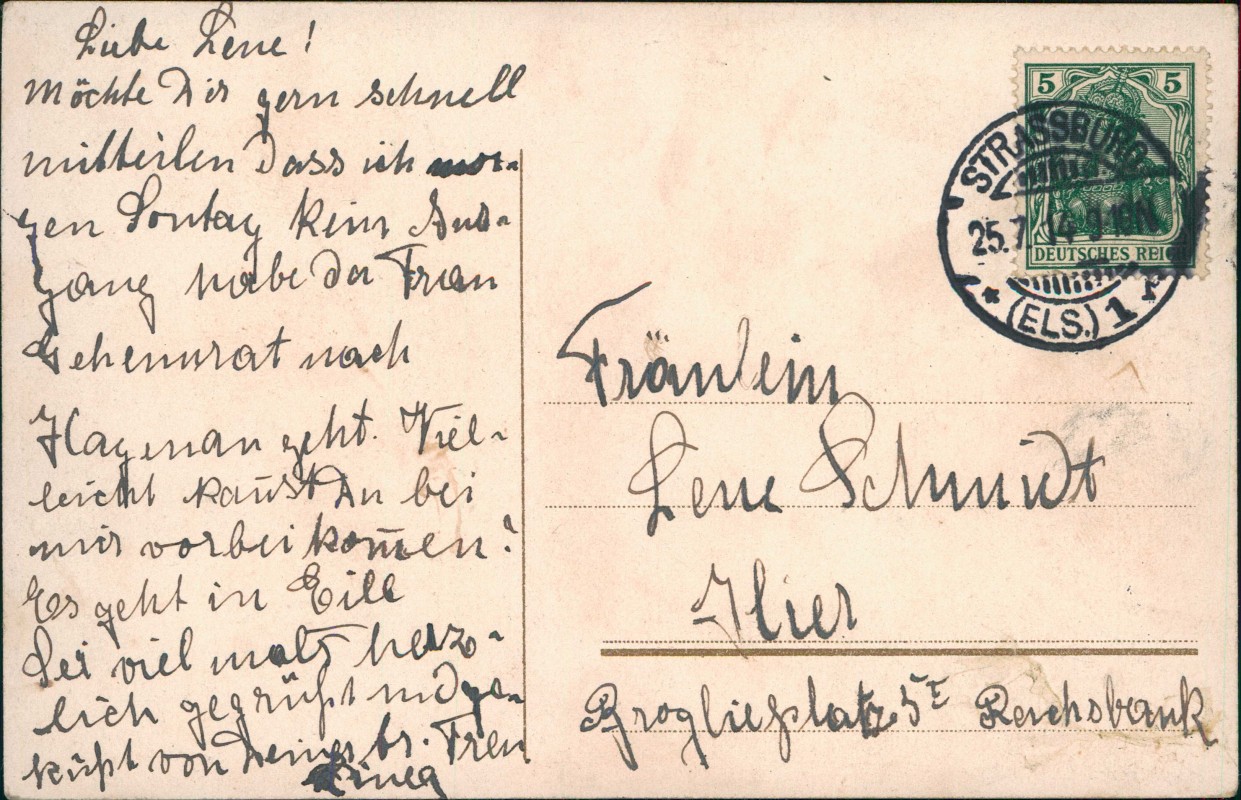 Liebe Lene!
möchte Dir gern schnell
mitteilen Dass ich mor-
gen Sontag kein Aus-
gang habe da Frau
Gehemrat nach
Hagenau geht. Viel-
leicht kanst Du bei
mir vorbei kom̄en?
Es geht in Eile
Sei viel mals herz-
lich gegrüßt und ge-
küßt von Deiner tr. Freu
5 5
STRASSBURG
25.7.14 9-10N
DEUTSCHES REICH
* (ELS.) 1 r
Fräulein
Lene Schmidt
Hier
Broglieplatz 5 I Reichsbank